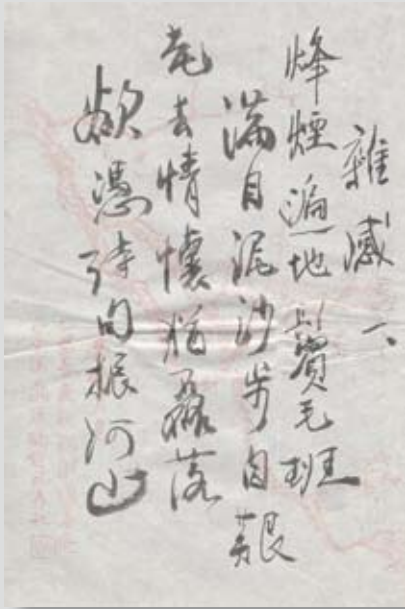 雜感
烽煙遍地鬢毛班
滿目泥沙步自艱
老去情懷猶磊落
欲憑詩句振河山